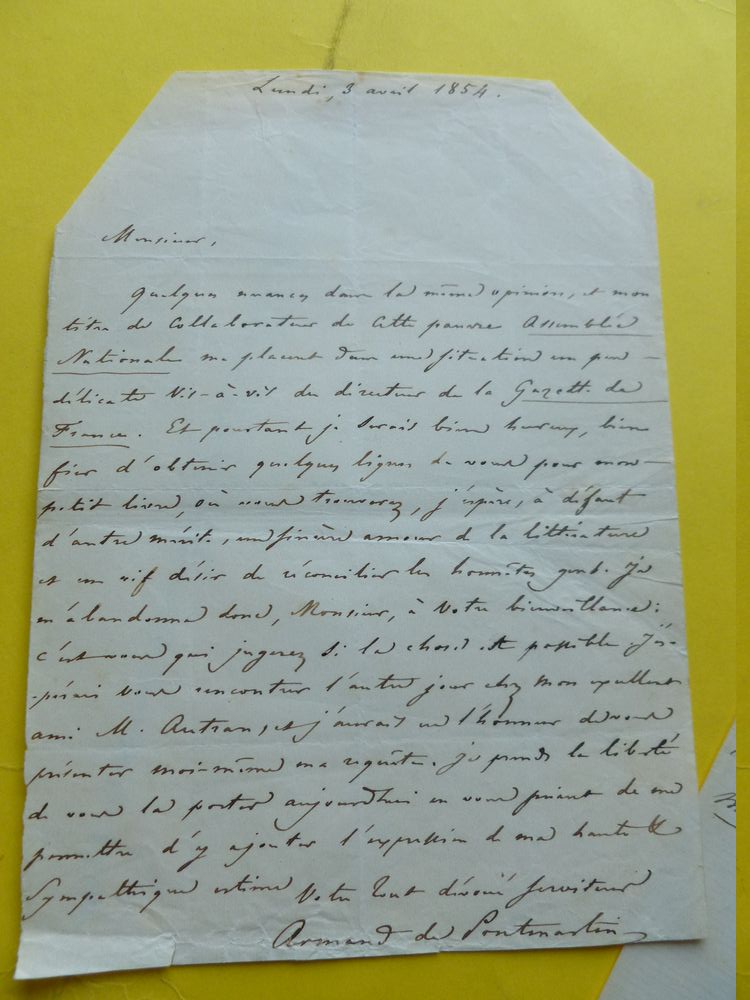 Lundi, 3 avril 1854.
Monsieur,
Quelques nuances dans la même opinion, et mon
titre de Collaborateur de Cette pauvre Assemblée
Nationale me placent dans une situation un peu
délicate Vis-à-vis du directeur de la Gazette de
France. Et pourtant je serais bien heureux, bien
fier d'obtenir quelques lignes de vous pour mon
petit livre, où vous trouverez, j'espère, à défaut
d'autre mérite, un sincère amour de la littérature
et un vif désir de réconcilier les honnêtes gens. Je
m'abandonne donc, Monsieur, à Votre bienveillance :
c'est vous qui jugerez si la chose est possible. J'es-
-pérais vous rencontrer l'autre jour chez mon excellent
ami M. Autran, et j'aurais eu l'honneur de vous
présenter moi-même ma requête. Je prends la liberté
de vous la porter aujourd'hui en vous priant de me
permettre d'y ajouter l'expression de ma haute &
Sympathique estime Votre tout dévoué serviteur
Armand de Pontmartin